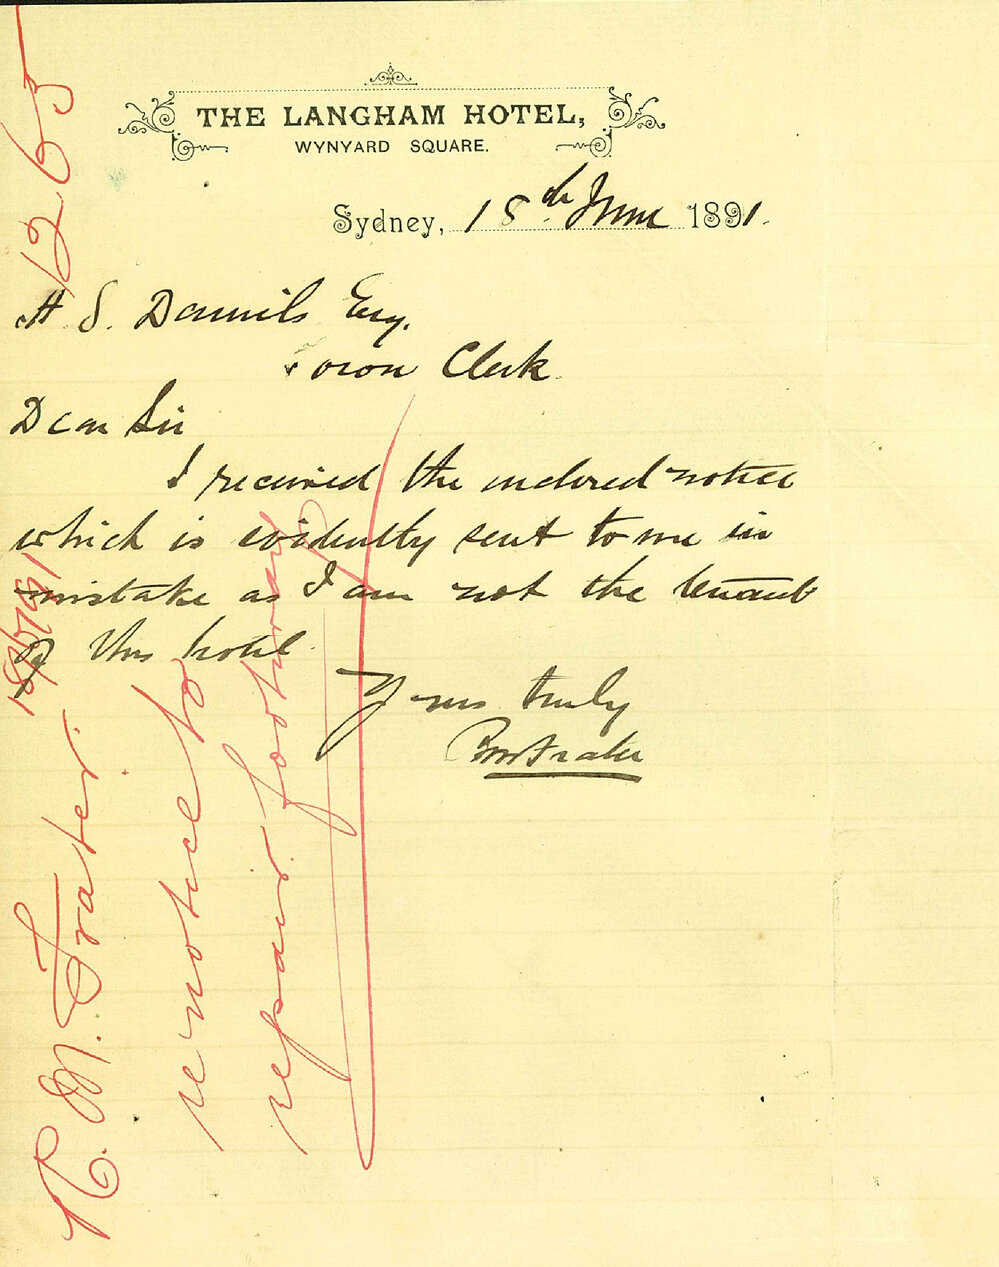 THE LANGHAM HOTEL,
WYNYARD SQUARE.
Sydney, 18th June 1891.
H. S. Daniels Esq.
Town Clerk
Dear Sir
I received the enclosed notice
which is evidently sent to me in
mistake as I am not the tenant
of this hotel.
Yours truly
RM Frater
1265
18/6/91
R. M. Frater.
re notice to
repair footway